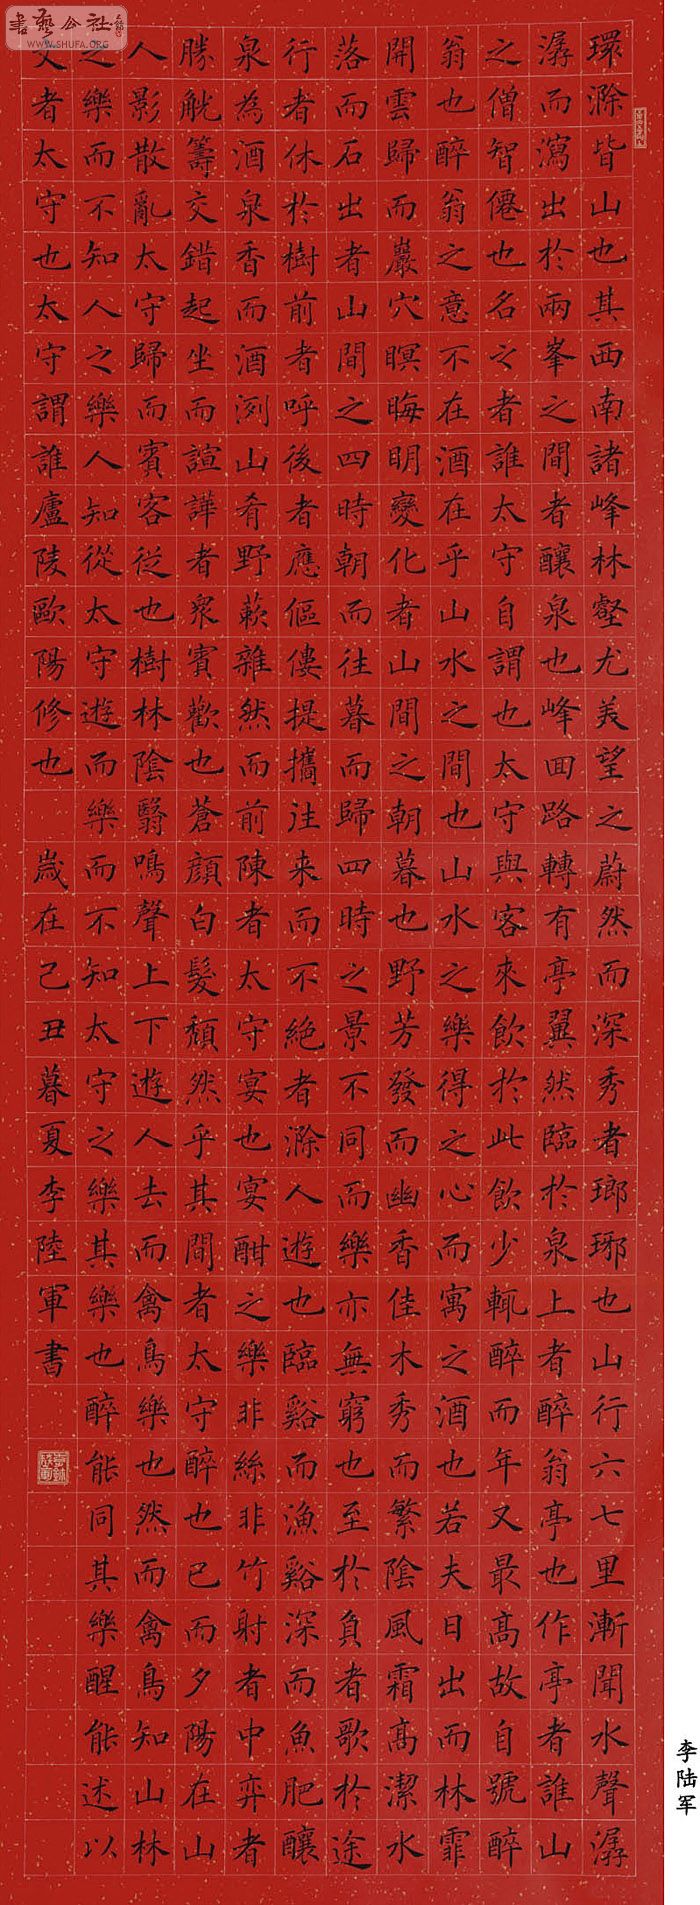 環滁皆山也其西南諸峰林壑尤美望之蔚然而深秀者瑯琊也山行六七里漸聞水聲潺
潺而瀉出於兩峯之間者釀泉也峰回路轉有亭翼然臨於泉上者醉翁亭也作亭者誰山
之僧智僊也名之者誰太守自謂也太守與客來飲於此飲少輒醉而年又最高故自號醉
翁也醉翁之意不在酒在乎山水之間也山水之樂得之心而寓之酒也若夫日出而林霏
開雲歸而巖穴暝晦明變化者山間之朝暮也野芳發而幽香佳木秀而繁陰風霜高潔水
落而石出者山間之四時朝而往暮而歸四時之景不同而樂亦無窮也至於負者歌於途
行者休於樹前者呼後者應傴僂提攜往来而不絕者滁人遊也臨谿而漁谿深而魚肥釀
泉為酒泉香而酒洌山肴野蔌雜然而前陳者太守宴也宴酣之樂非絲非竹射者中弈者
勝觥籌交錯起坐而諠譁者眾賓歡也蒼顏白髮頹然乎其間者太守醉也已而夕陽在山
人影散亂太守歸而賓客從也樹林陰翳鳴聲上下遊人去而禽鳥樂也然而禽鳥知山林
之樂而不知人之樂人知從太守遊而樂而不知太守之樂其樂也醉能同其樂醒能述以
文者太守也太守謂誰廬陵歐陽修也 歲在己丑暮夏李陸軍書
李陆军
書藝公社
www.SHUFA.ORG